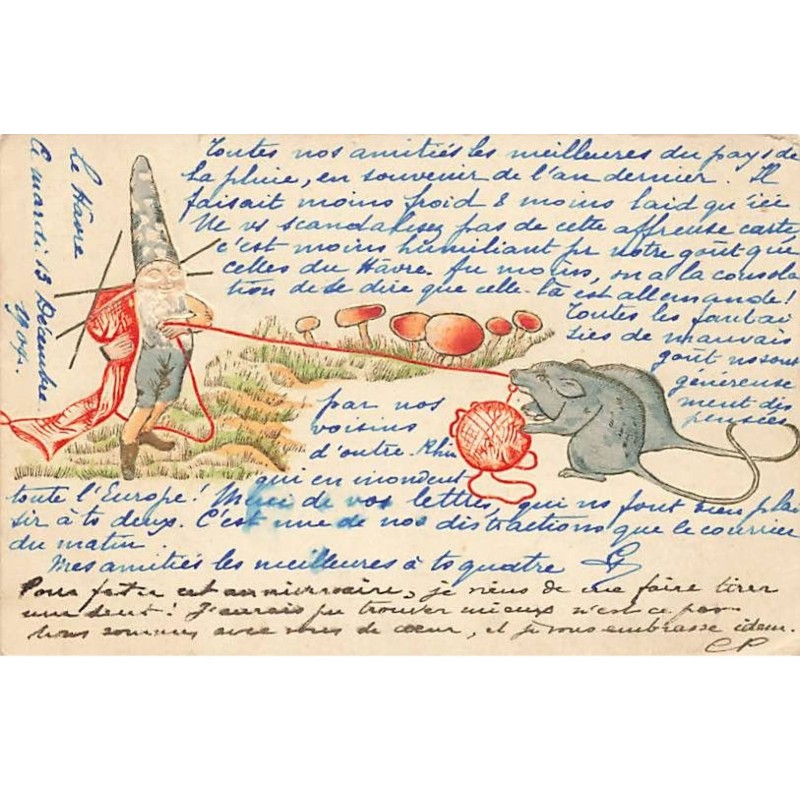 Le Hâvre
Ce mardi 13 Décembre
1904.
Toutes nos amitiés les meilleures du pays de
la pluie, en souvenir de l'an dernier. Il
faisait moins froid & moins laid qu'ici
Ne vs scandalisez pas de cette affreuse carte
c'est moins humiliant pr notre goût que
celles du Hâvre. Au moins, on a la consola
tion de se dire que celle-là est allemande!
Toutes les fantai
sies de mauvais
goût nous sont
généreuse
ment dis
pensées
par nos
voisins
d'outre-Rhin
qui en inondent
toute l'Europe! Merci de vos lettres, qui ns font bien plai
sir à ts deux. C'est une de nos distractions que le courrier
du matin
Mes amitiés les meilleures à ts quatre
Pour fêter cet anniversaire, je viens de me faire tirer
une dent! J'aurais pu trouver mieux n'est ce pas
Nous sommes avec vous de cœur, et je vous embrasse idem.
CP